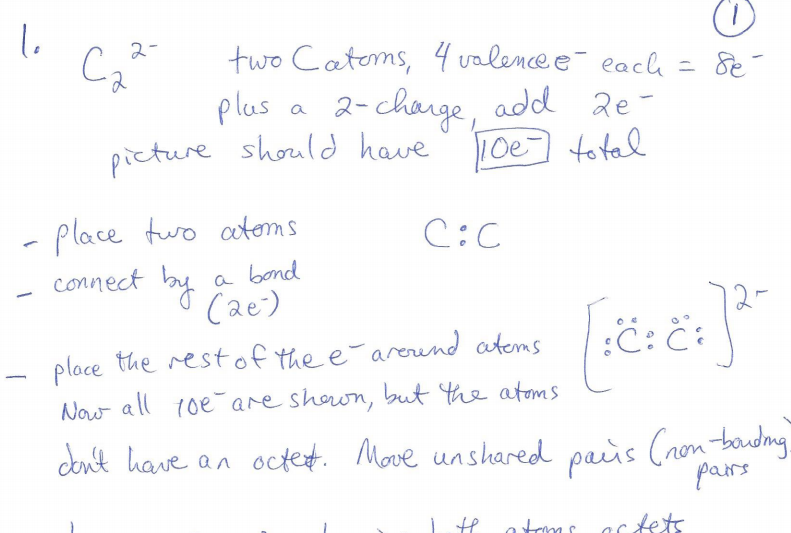 ①
1. C₂²⁻ two C atoms, 4 valence e⁻ each = 8e⁻
plus a 2-charge, add 2e⁻
picture should have 10e⁻ total
- place two atoms C:C
- connect by a bond
(2e⁻)
- place the rest of the e⁻ around atoms [:C̈:C̈:]²⁻
Now all 10e⁻ are shown, but the atoms
don't have an octet. Move unshared pairs (non-bonding
pairs
both atoms octets